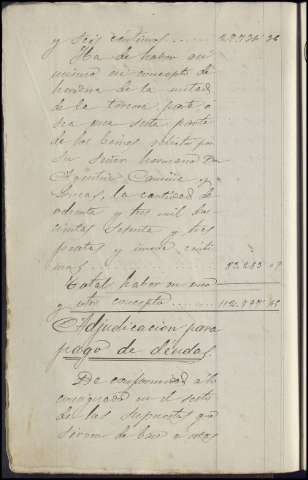 y seis centimos
Ha de haber asi
mismo en concepto de
herencia de la mitad
de la tercera parte ó
sea una sesta parte
de los bienes relictos por
su Señor hermano Don
Agustin
la cantidad de
ochenta y tres mil dos
cientas setenta y tres
pesetas y nueve centi
mos
Total haber en uno
y otro concepto
Adjudicacion para
pago de deudas.
De conformidad á lo
consignado en el sesto
de los supuestos que
sirven de base á estas